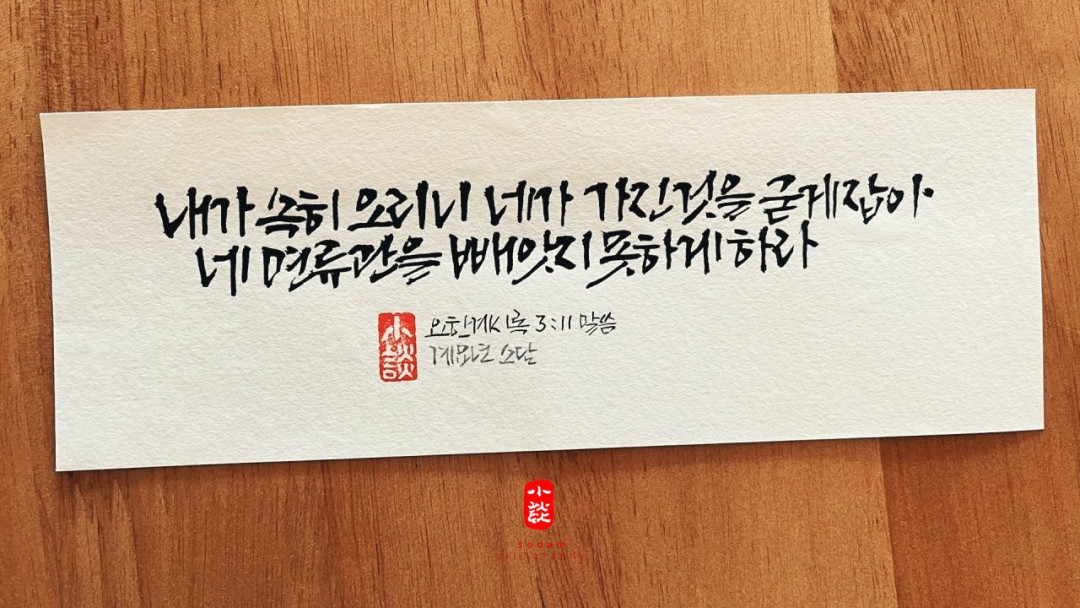 내가 속히 오리니 네가 가진것을 굳게잡아
네 면류관을 빼앗지 못하게하라
요한계시록 3:11 말씀
계묘년 소담
小談
小談
sodam